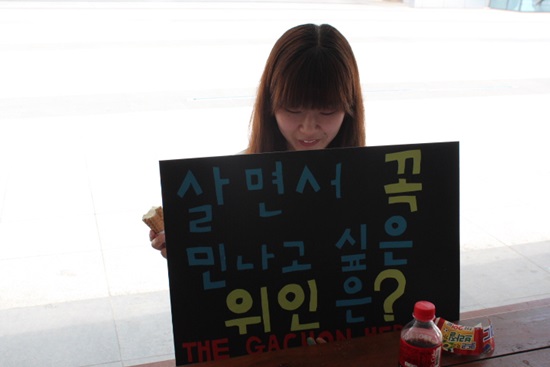 살면서 꼭
민나고 싶은
위인은?
THE GACHON